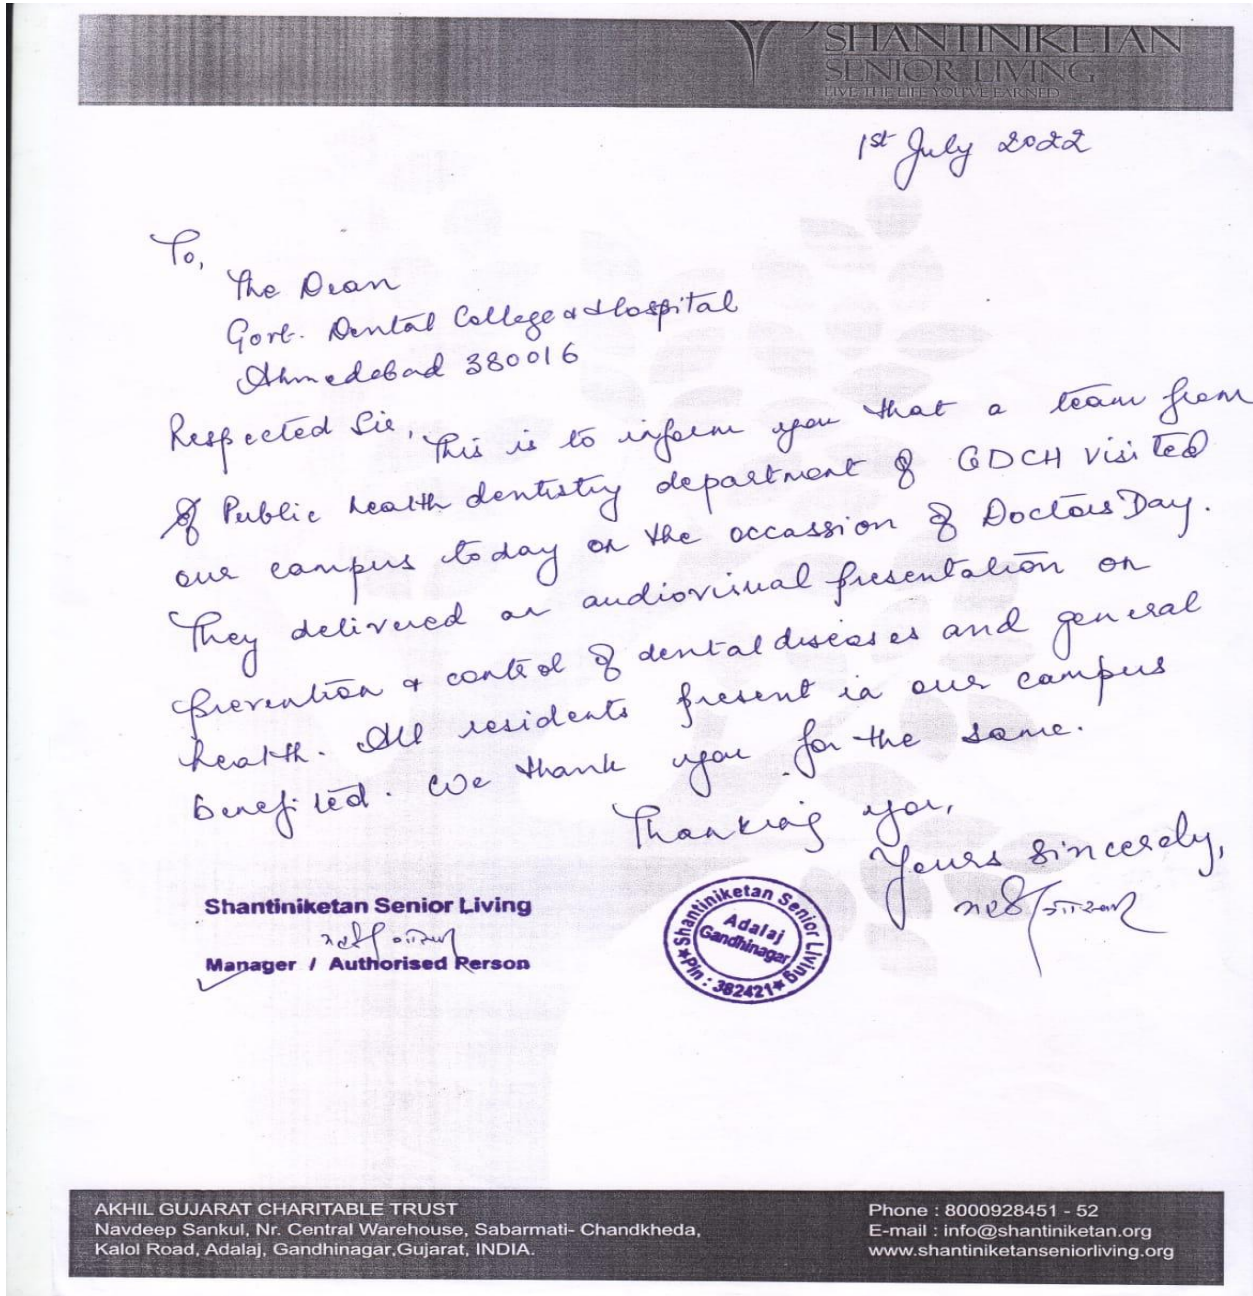 SHANTINIKETAN
SENIOR LIVING
LIVE THE LIFE YOU'VE EARNED
1st July 2022
To,
The Dean
Govt. Dental College & Hospital
Ahmedabad 380016
Respected Sir, This is to inform you that a team from
of Public health dentistry department of GDCH visited
our campus today on the occassion of Doctors Day.
They delivered an audiovisual presentation on
prevention & control of dental diseases and general
health. All residents present in our campus
benefited. We thank you for the same.
Thanking you,
Yours sincerely,
Shantiniketan Senior Living
Manager / Authorised Person
Shantiniketan Senior Living
Adalaj
Gandhinagar
Pin : 382421
AKHIL GUJARAT CHARITABLE TRUST
Navdeep Sankul, Nr. Central Warehouse, Sabarmati- Chandkheda,
Kalol Road, Adalaj, Gandhinagar,Gujarat, INDIA.
Phone : 8000928451 - 52
E-mail : info@shantiniketan.org
www.shantiniketanseniorliving.org